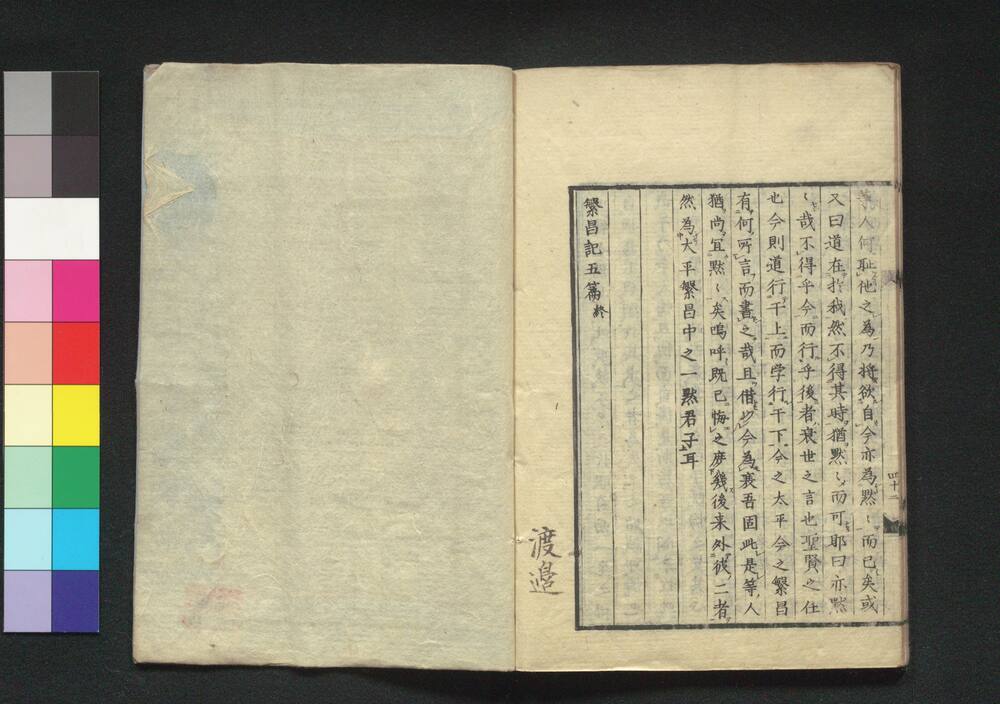 人何耻他之為乃将欲自今亦為黙〻而已矣或
又曰道在於我然不得其時猶黙〻而可耶曰亦黙
〻哉不得乎今而行乎後者衰世之言也聖賢之任
也今則道行干上而学行干下今之太平今之繁昌
有何所言而書之哉且借也今為衰吾固此是等人
猶尚冝黙〻矣嗚呼既已悔之庶幾後来外彼二者
然為大平繁昌中之一黙君子耳
繁昌記五篇終
四十二
渡邉